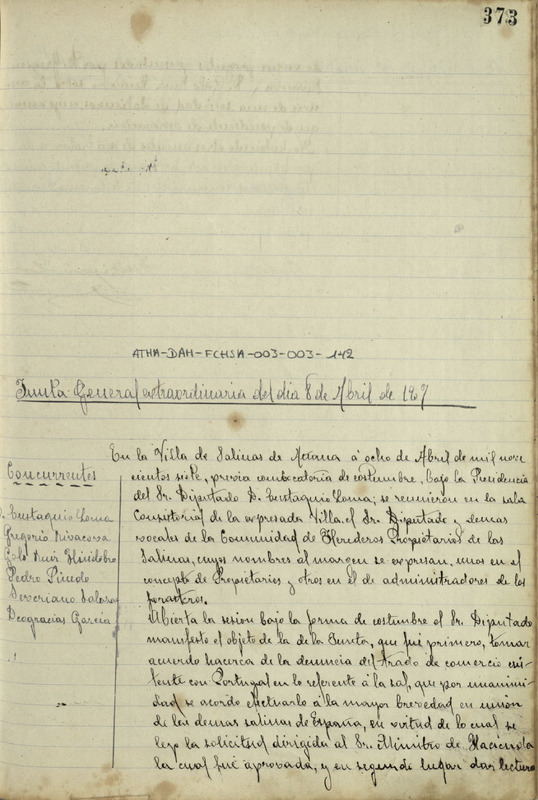 373
ATHA-DAH-FCHSA-003-003-142
Junta General extraordinaria del dia 8 de Abril de 1907
En la Villa de Salinas de Añana á ocho de Abril de mil nove
cientos siete, previa combocatoria de costumbre, bajo la Presidencia
del Sr. Diputado D. Eustaquio Loma; se reunieron en la sala
Consitorial de la expresada Villa el Sr. Diputado y demas
vocales de la Comunidad de Herederos Propietarios de las
Salinas, cuyos nombres al margen se expresan, unos en el
concepto de Propietarios y otros en el de administradores de los
foraneos.
Concurrentes
D. Eustaquio Loma
Gregorio
Ruiz
Pedro Pinedo
Severiano
Deogracias Garcia
Abierta la sesion bajo la forma de costumbre el Sr. Diputado
manifestó el objeto de la de la Junta, que fué primero, tomar
acuerdo hacerca de la denuncia del tratado de comercio exis
tente con Portugal en lo referente á la sal, que por unanimi
dad se acordó efectuarlo á la mayor brevedad en union
de las demas salinas de España, en virtud de lo cual se
leyó la solicitud dirigida al Sr. Ministro de Hacienda
la cual fué aprovada, y en segundo lugar dar lectura